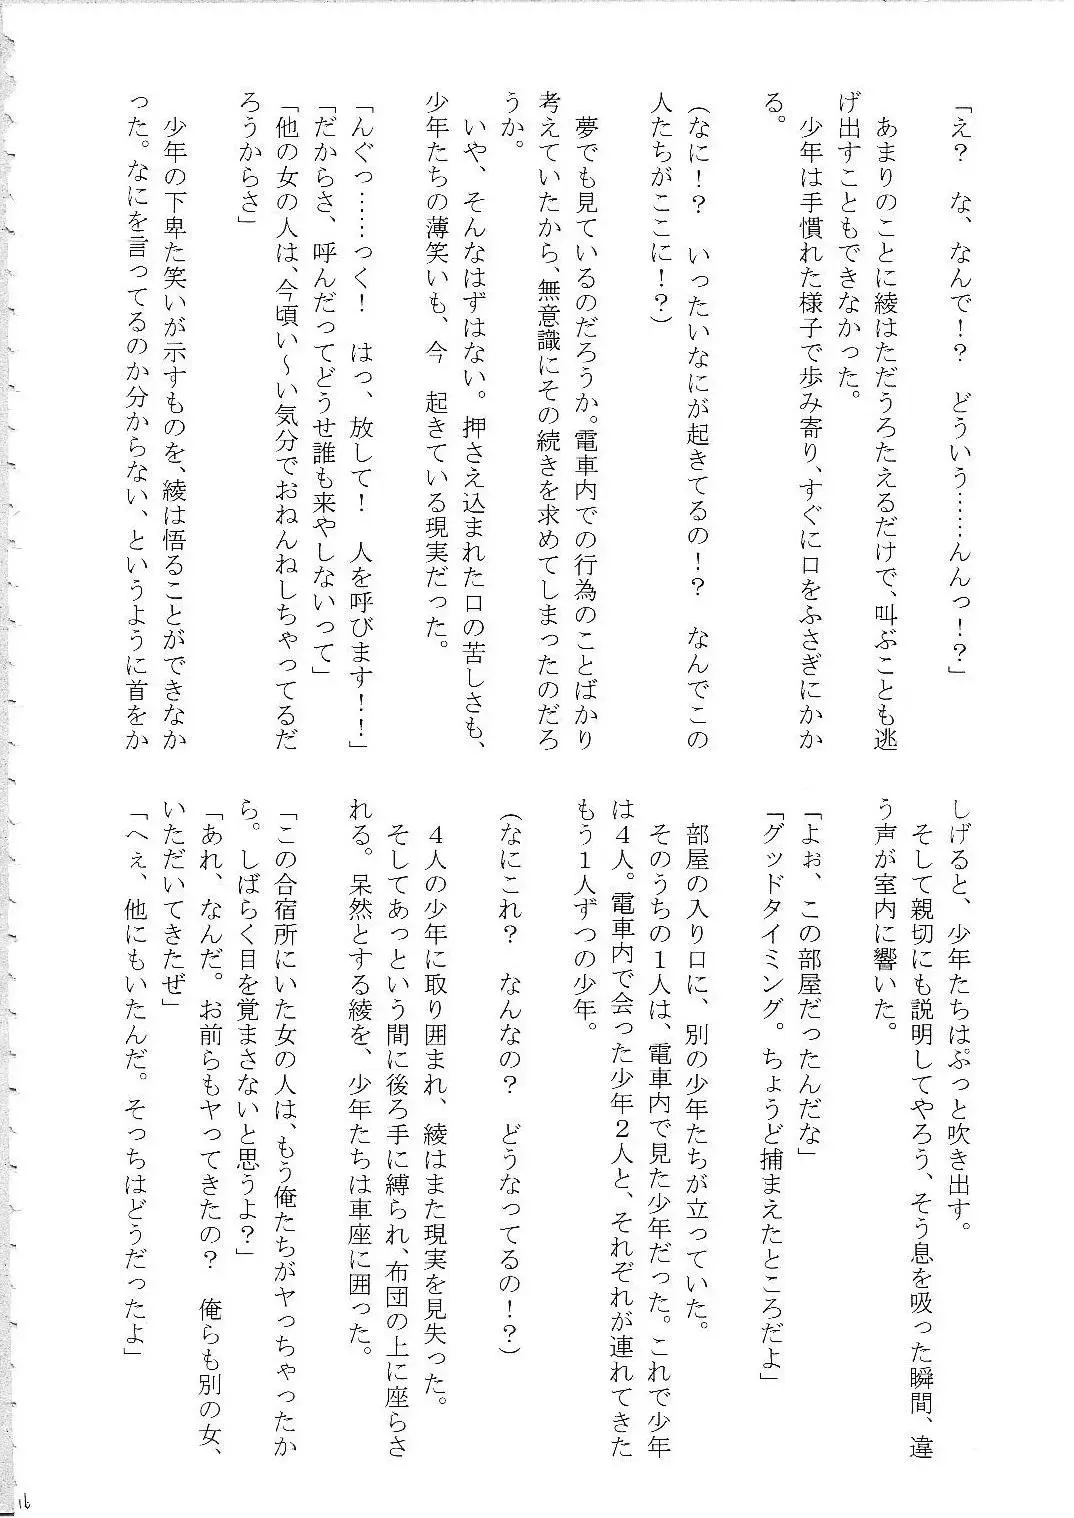 「え？　な、なんで！？　どういう……んんっ！？」
　あまりのことに綾はただうろたえるだけで、叫ぶことも逃
げ出すこともできなかった。
　少年は手慣れた様子で歩み寄り、すぐに口をふさぎにかか
る。
（なに！？　いったいなにが起きてるの！？　なんでこの
人たちがここに！？）
　夢でも見ているのだろうか。電車内での行為のことばかり
考えていたから、無意識にその続きを求めてしまったのだろ
うか。
　いや、そんなはずはない。押さえ込まれた口の苦しさも、
少年たちの薄笑いも、今　起きている現実だった。
「んぐっ……っく！　はっ、放して！　人を呼びます！！」
「だからさ、呼んだってどうせ誰も来やしないって」
「他の女の人は、今頃い～い気分でおねんねしちゃってるだ
ろうからさ」
　少年の下卑た笑いが示すものを、綾は悟ることができなか
った。なにを言ってるのか分からない、というように首をか
しげると、少年たちはぷっと吹き出す。
　そして親切にも説明してやろう、そう息を吸った瞬間、違
う声が室内に響いた。
「よぉ、この部屋だったんだな」
「グッドタイミング。ちょうど捕まえたところだよ」
　部屋の入り口に、別の少年たちが立っていた。
　そのうちの１人は、電車内で見た少年だった。これで少年
は４人。電車内で会った少年２人と、それぞれが連れてきた
もう１人ずつの少年。
（なにこれ？　なんなの？　どうなってるの！？）
　４人の少年に取り囲まれ、綾はまた現実を見失った。
　そしてあっという間に後ろ手に縛られ、布団の上に座らさ
れる。呆然とする綾を、少年たちは車座に囲った。
「この合宿所にいた女の人は、もう俺たちがヤっちゃったか
ら。しばらく目を覚まさないと思うよ？」
「あれ、なんだ。お前らもヤってきたの？　俺らも別の女、
いただいてきたぜ」
「へぇ、他にもいたんだ。そっちはどうだったよ」
16